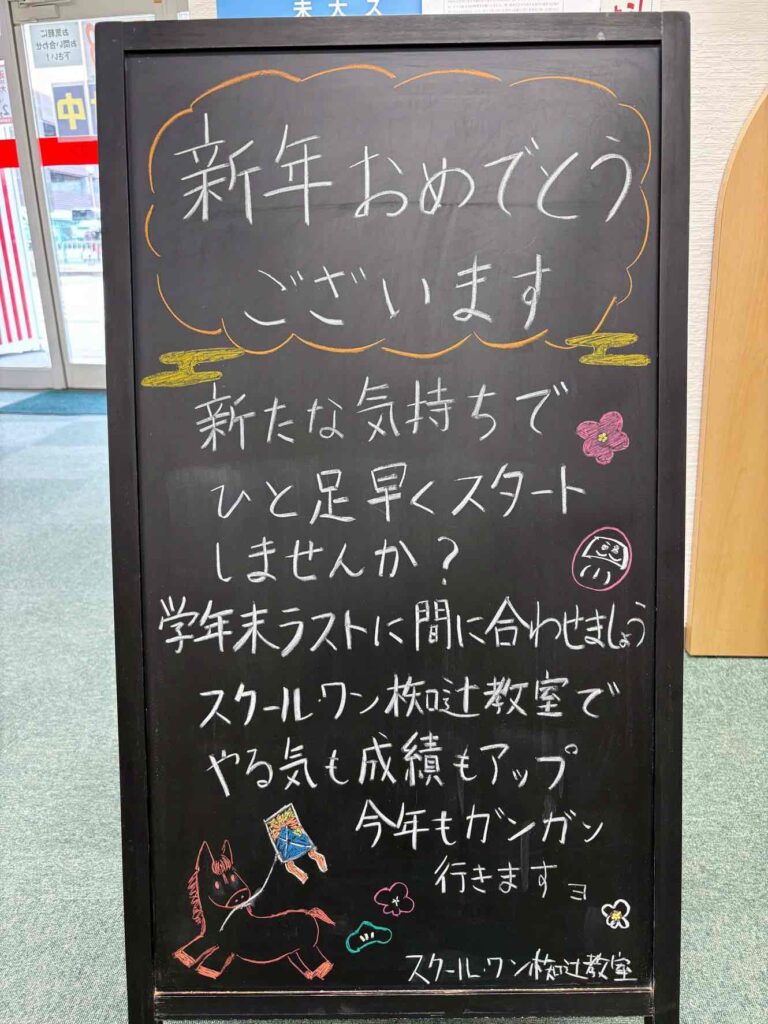 お気軽に
お問い合わせ
下さい！
中
新年おめでとう
ございます
新たな気持ちで
ひと足早くスタート
しませんか？
学年末ラストに間に合わせましょう
スクール・ワン椥辻教室で
やる気も成績もアップ
今年もガンガン
行きますヨ
スクール・ワン椥辻教室